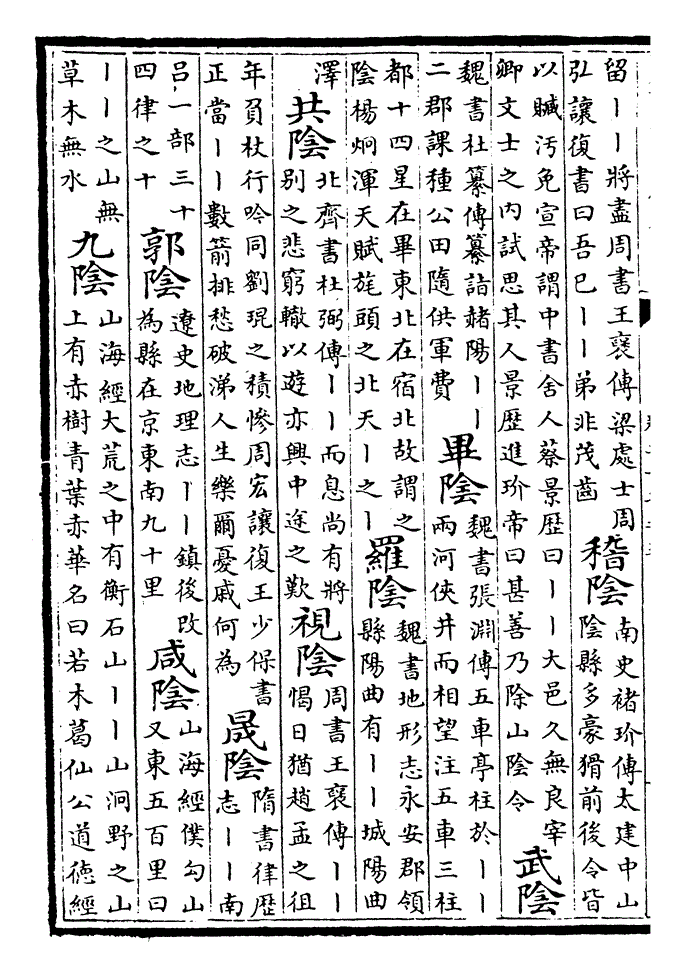 留丨丨將盡周書王襃傳梁處士周
弘讓復書曰吾巳丨丨弟非茂齒
稽陰
南史褚玠傳太建中山
陰縣多豪猾前後令皆
以贓汚免宣帝謂中書舍人蔡景歴曰丨丨大邑久無良宰
卿文士之内試思其人景歴進玠帝曰甚善乃除山陰令
武陰
魏書杜纂傳纂詣赭陽丨丨
二郡課種公田隨供軍費
畢陰
魏書張淵傳五車亭柱於丨丨
兩河俠井而相望注五車三柱
都十四星在畢東北在宿北故謂之
陰楊炯渾天賦旄頭之北天丨之丨
羅陰
魏書地形志永安郡領
縣陽曲有丨丨城陽曲
澤
共陰
北齊書杜弼傳丨丨而息尚有將
别之悲窮轍以遊亦興中途之歎
視陰
周書王襃傳丨丨
愒日猶趙孟之徂
年負杖行吟同劉琨之積慘周宏讓復王少保書
正當丨丨數箭排愁破涕人生樂爾憂戚何為
晟陰
隋書律歴
志丨丨南
吕一部三十
四律之十
郭陰
遼史地理志丨丨鎮後改
為縣在京東南九十里
咸陰
山海經僕勾山
又東五百里曰
丨丨之山無
草木無水
九陰
山海經大荒之中有衡石山丨丨山洞野之山
上有赤樹青葉赤華名曰若木葛仙公道徳經